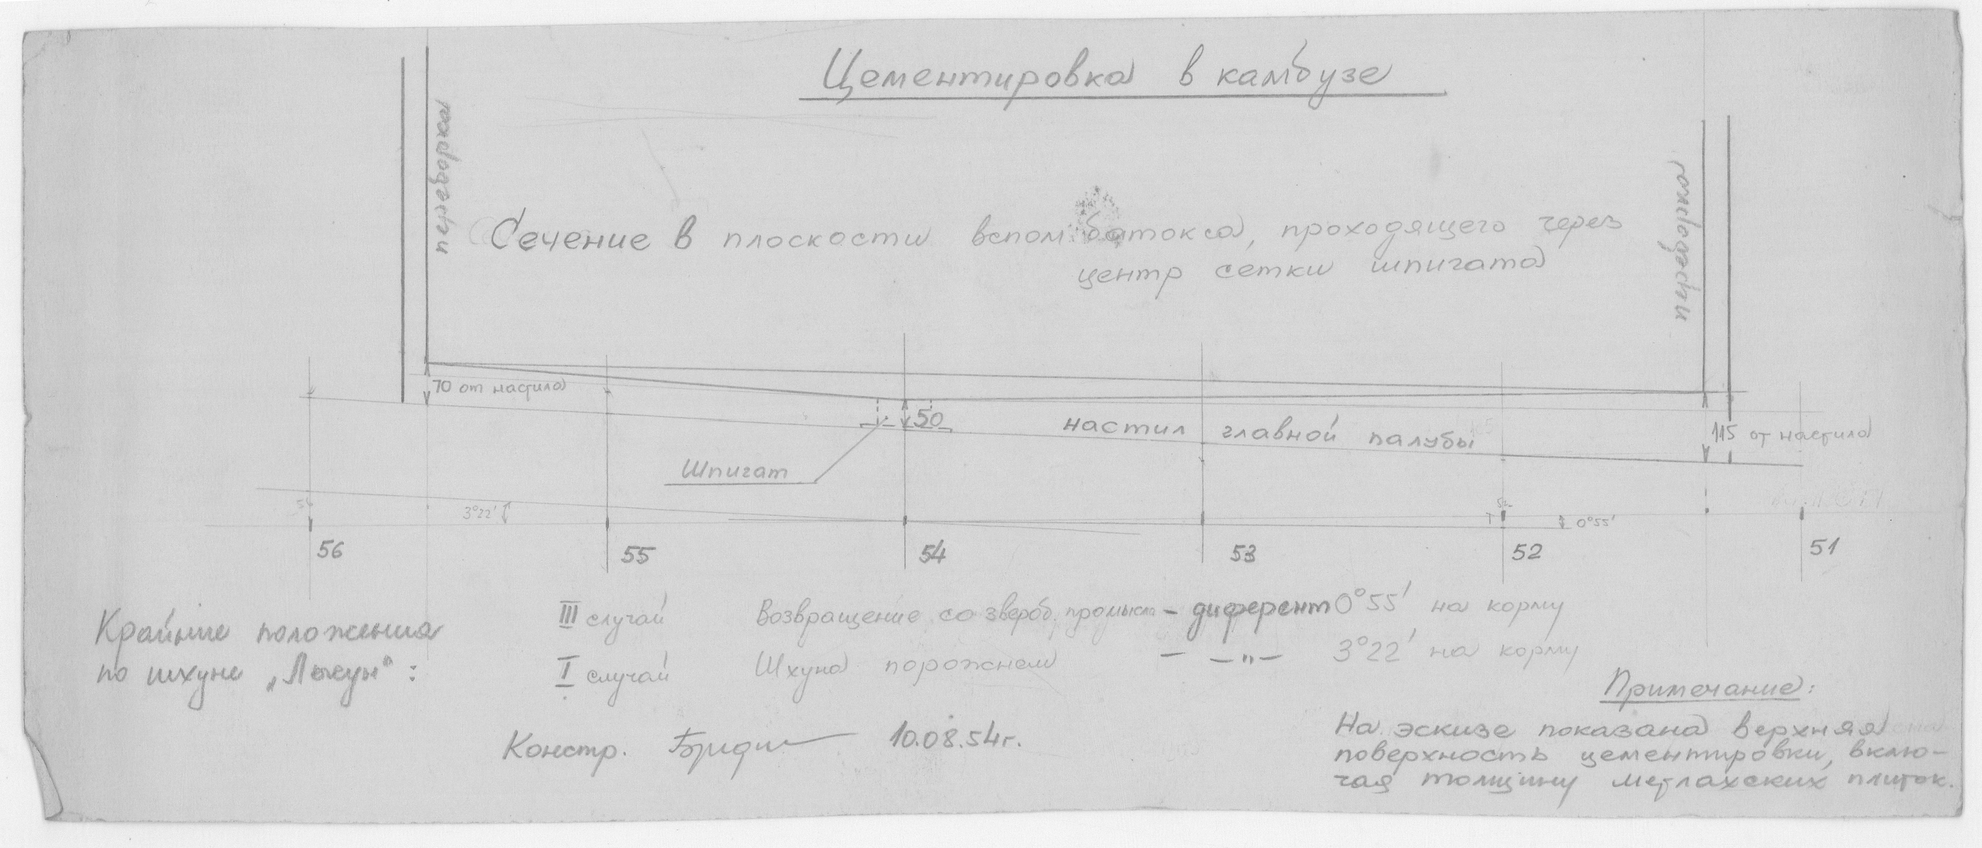 Цементировка в камбузе
изоляция
изоляция
Сечение в плоскости вспом. батокса, проходящего через
центр сетки шпигата
70 от настила
50
настил главной палубы
115 от настила
Шпигат
3°22'
0°55'
56 55 54 53 52 51
Крайние положения
по шхуне „Лысун“:
III случай Возвращение со звероб. промысла – диферент 0°55' на корму
I случай Шхуна порожнем — –"– 3°22' на корму
Констр. 10.08.54г.
Примечание:
На эскизе показана верхняя
поверхность цементировки, вклю-
чая толщину метлахских плиток.